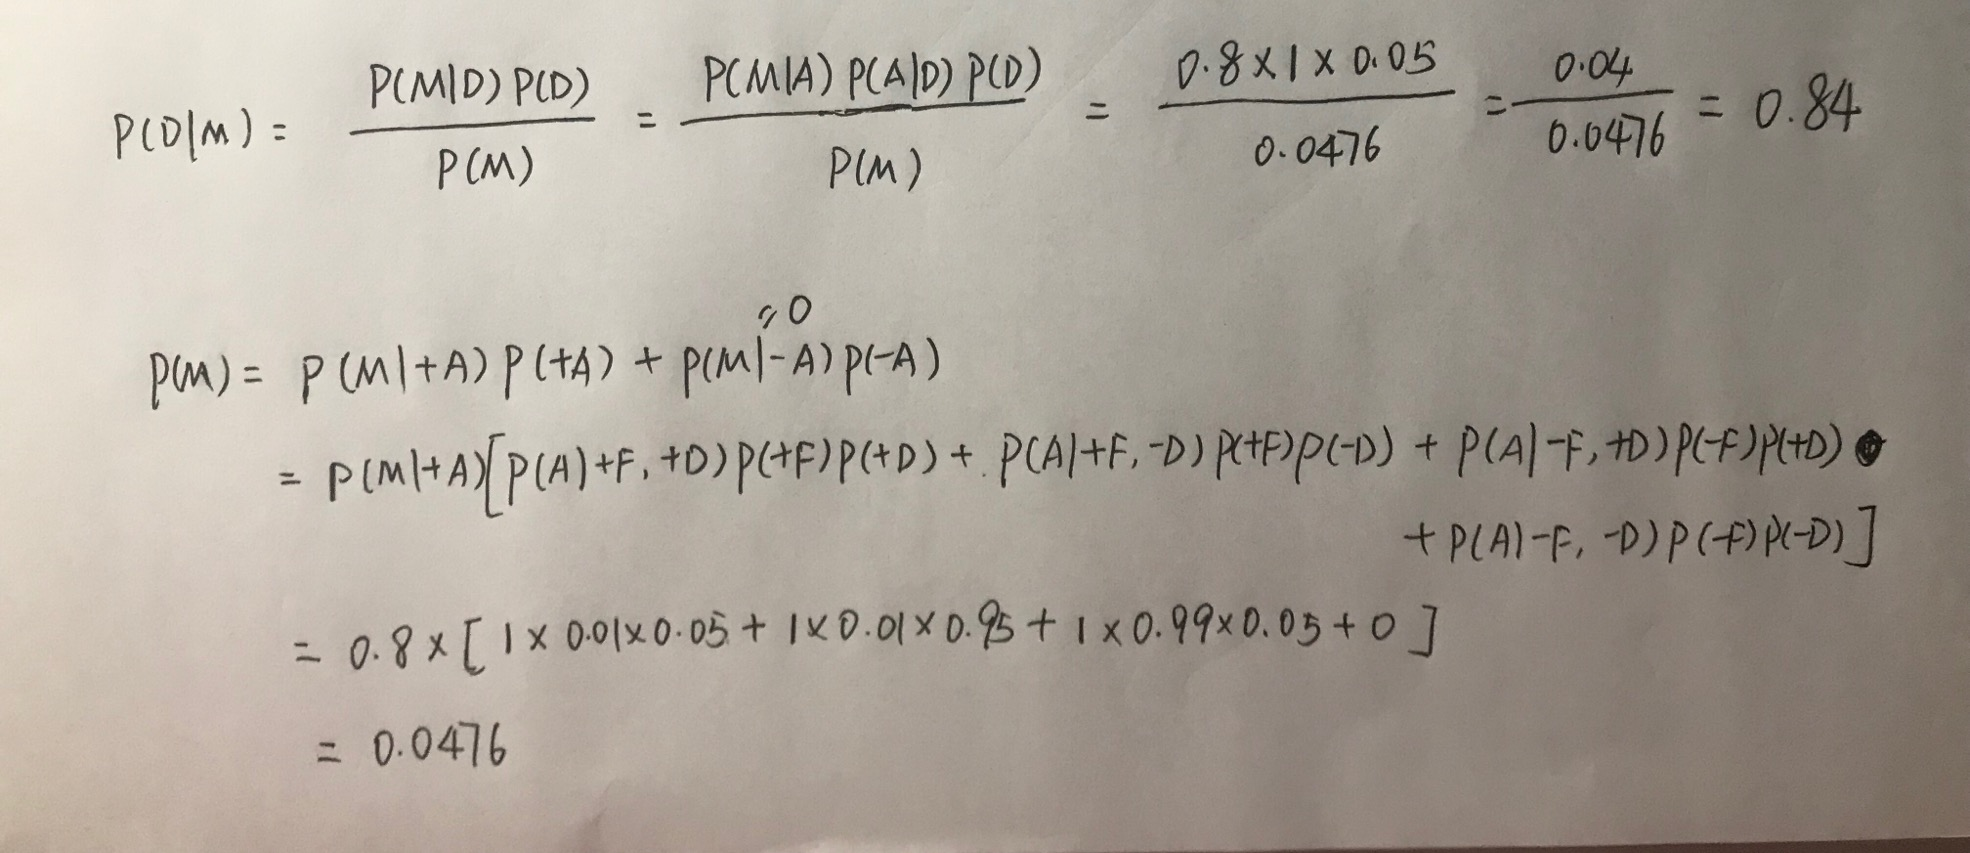 P(D|M) = P(M|D) P(D) / P(M) = P(M|A) P(A|D) P(D) / P(M) = 0.8 × 1 × 0.05 / 0.0476 = 0.04 / 0.0476 = 0.84
= 0
P(M) = P(M|+A) P(+A) + P(M|-A) P(-A)
= P(M|+A) [P(A|+F, +D) P(+F) P(+D) + P(A|+F, -D) P(+F) P(-D) + P(A|-F, +D) P(-F) P(+D)
+ P(A|-F, -D) P(-F) P(-D)]
= 0.8 × [1 × 0.01 × 0.05 + 1 × 0.01 × 0.95 + 1 × 0.99 × 0.05 + 0]
= 0.0476